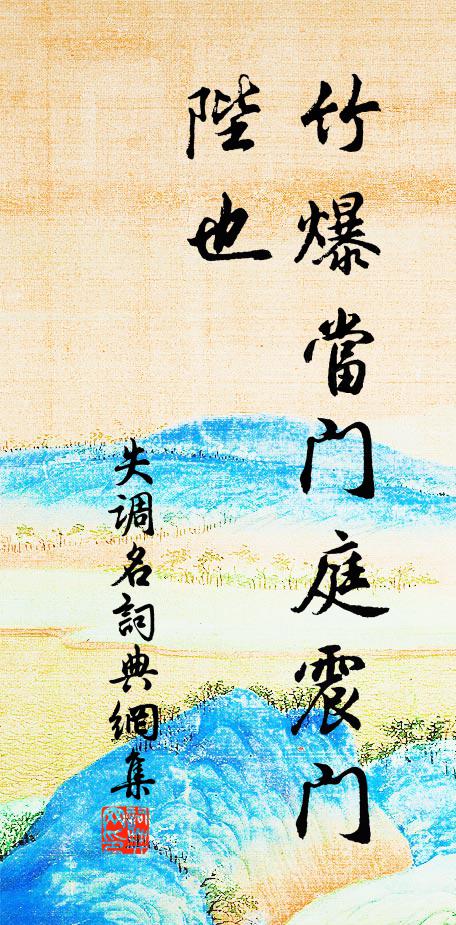 竹爆當門庭震門
陛也
失调名詞典網集